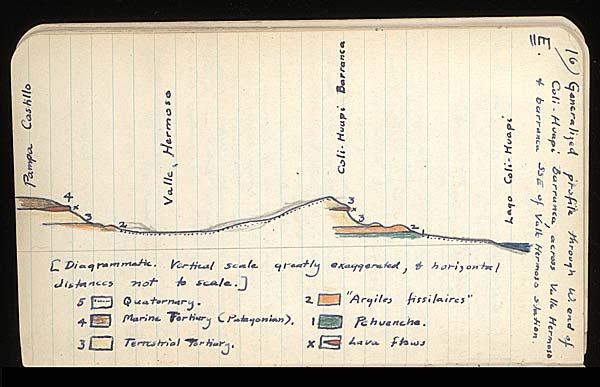 16) Generalized profile through W. end of
Coli-Huapi Barranca, across Valle Hermoso
& barranca SSE of Valle Hermoso station.
E.
Pampa Castillo
Valle Hermoso
Coli-Huapi Barranca
Lago Coli-Huapi
4
x
3
2
3
x
2
1
[Diagrammatic. Vertical scale greatly exaggerated, & horizontal
distances not to scale.]
5 Quaternary.
4 Marine Tertiary (Patagonian).
3 Terrestrial Tertiary.
2 "Argiles fissilaires"
1 Pehuenche.
x Lava flows